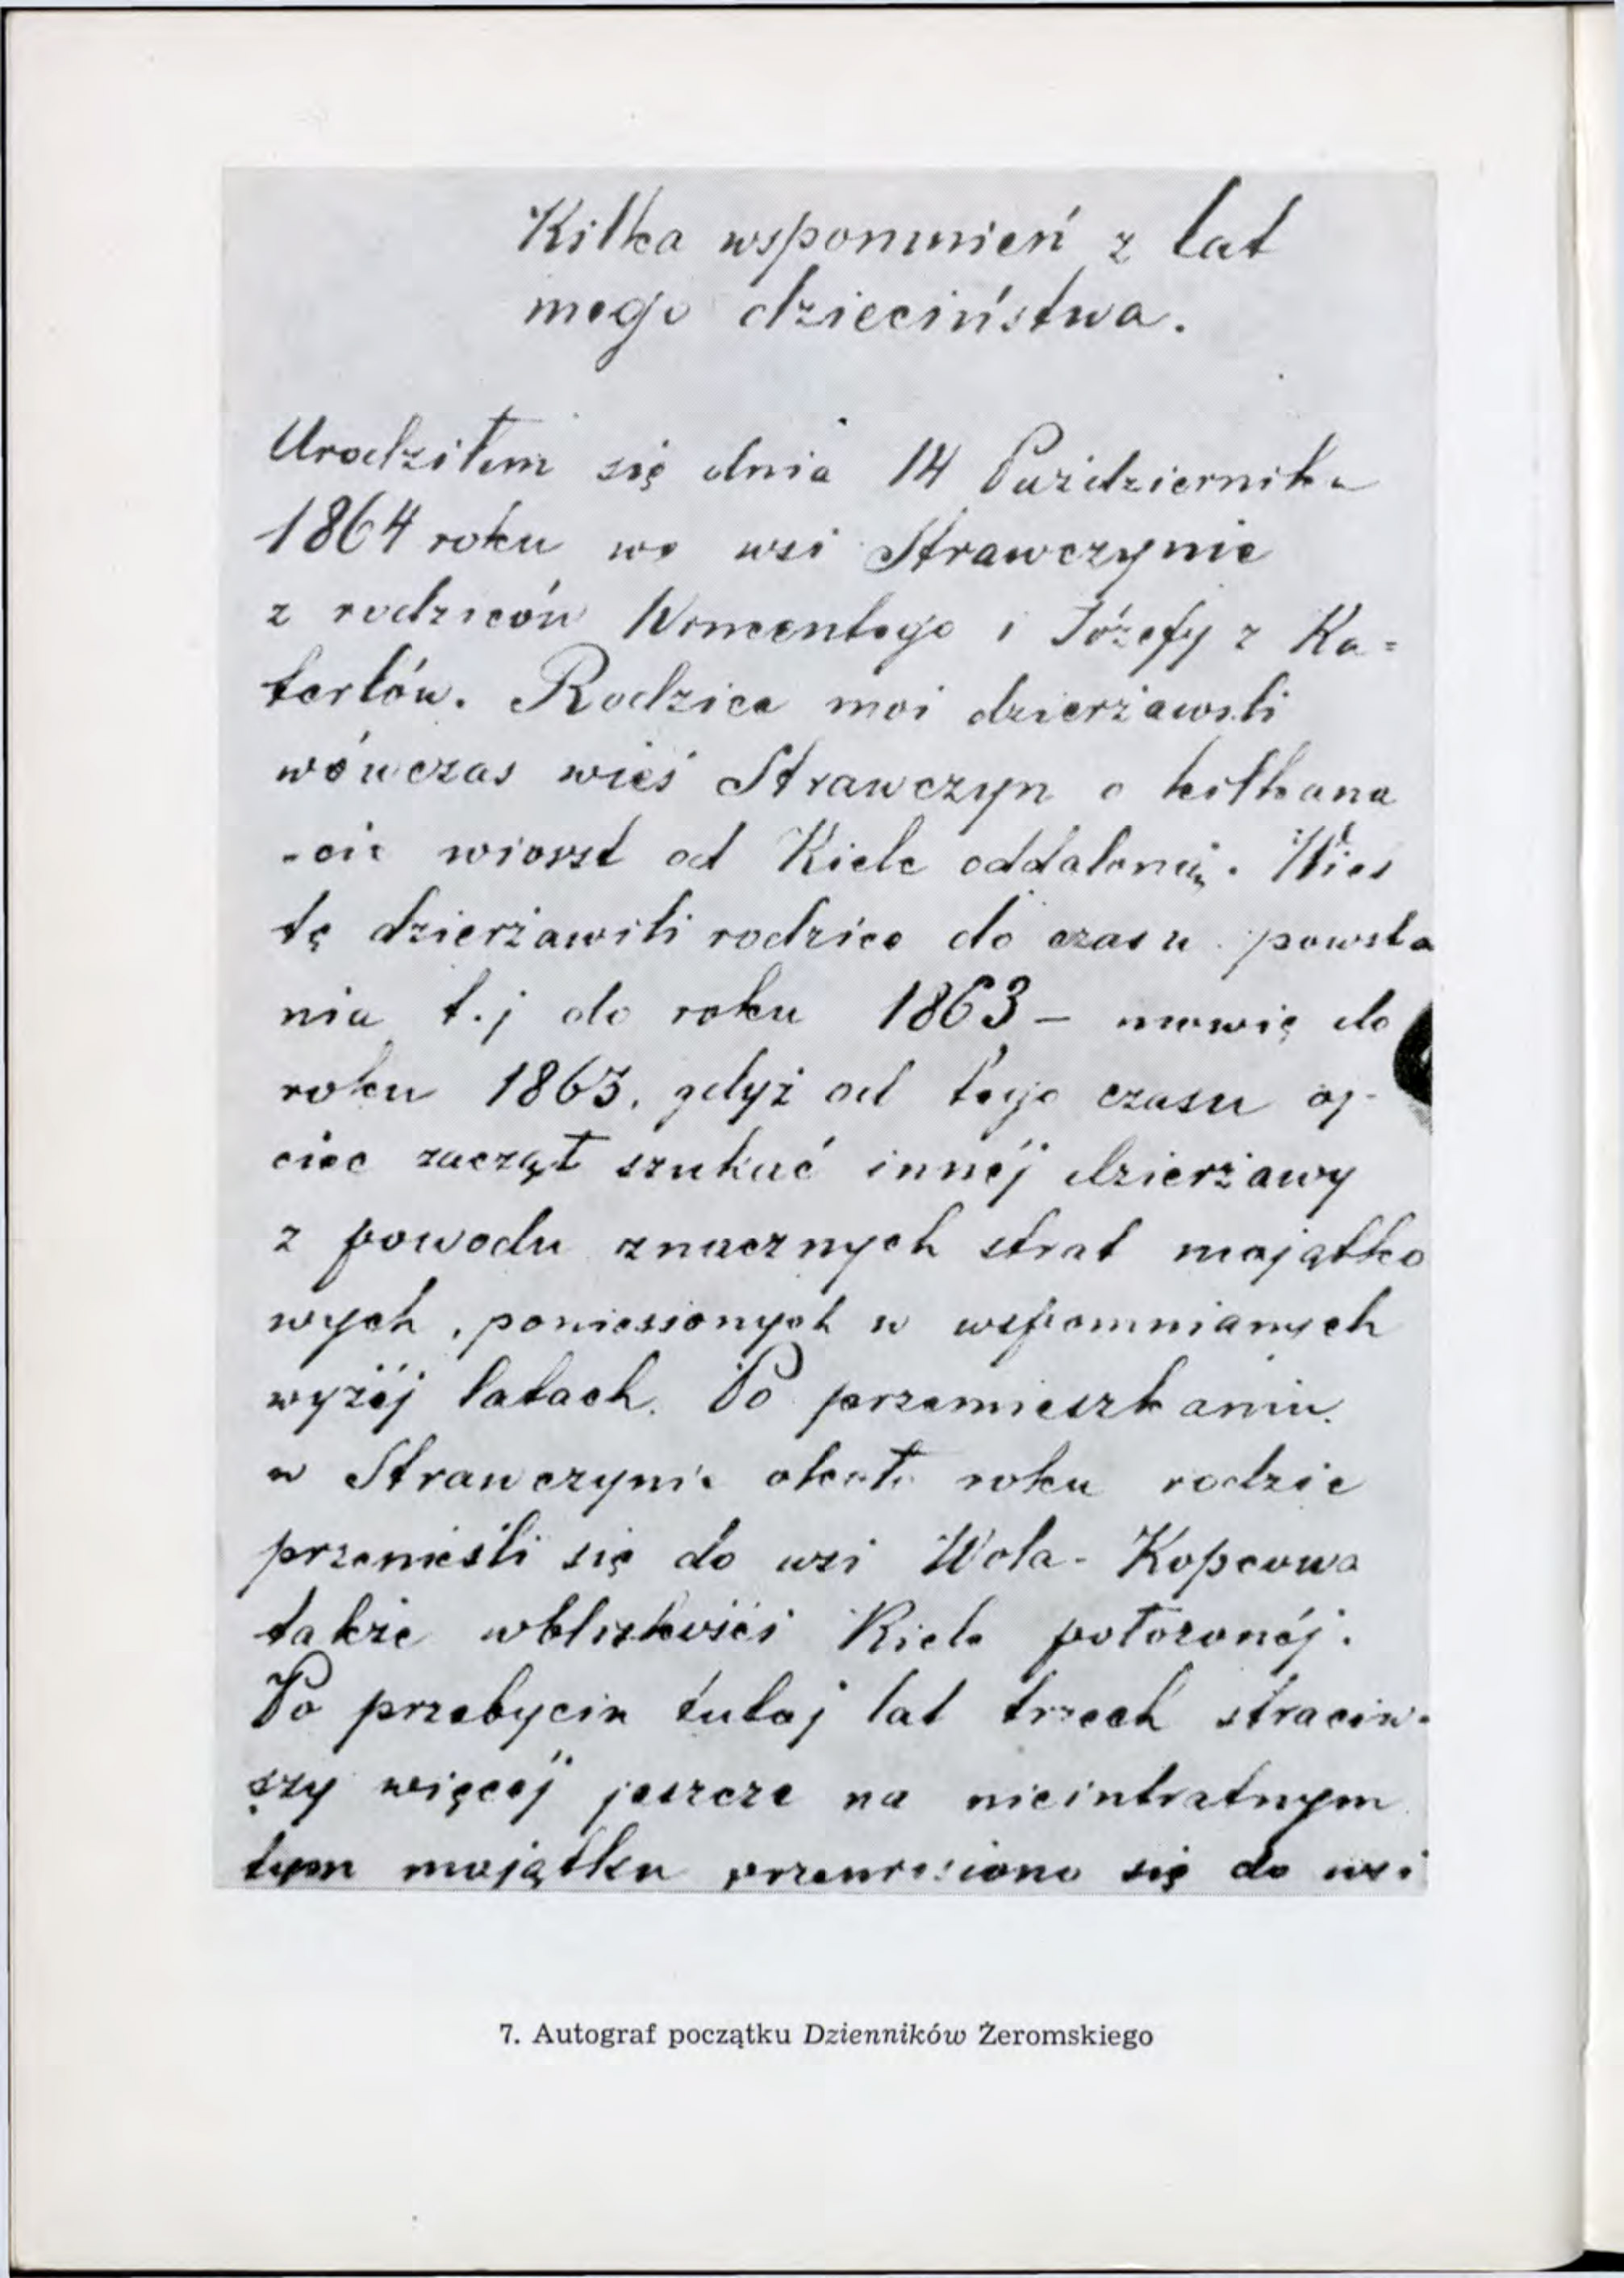 Kilka wspomnień z lat
mego dzieciństwa.
Urodziłem się dnia 14 Października
1864 roku we wsi Strawczynie
z rodziców Wincentego i Józefy z Ka=
terlów. Rodzice moi dzierżawili
wówczas wieś Strawczyn o kilkana
-cie wiorst od Kielc oddaloną. Wieś
tę dzierżawili rodzice do czasu powsta
nia t.j do roku 1863 – mowię do
roku 1863, gdyż od tego czasu oj-
ciec zaczął szukać innéj dzierżawy
z powodu znacznych strat majątko
wych, poniesionych w wspomnianych
wyżéj latach. Po przemieszkaniu
w Strawczynie około roku rodzice
przenieśli się do wsi Wola-Kopcowa
także wblizkości Kielc położonéj.
Po przebyciu tutaj lat trzech straciw-
szy więcéj jeszcze na nieintratnym
tym majątku przeniesiono się do wsi
7. Autograf początku Dzienników Żeromskiego